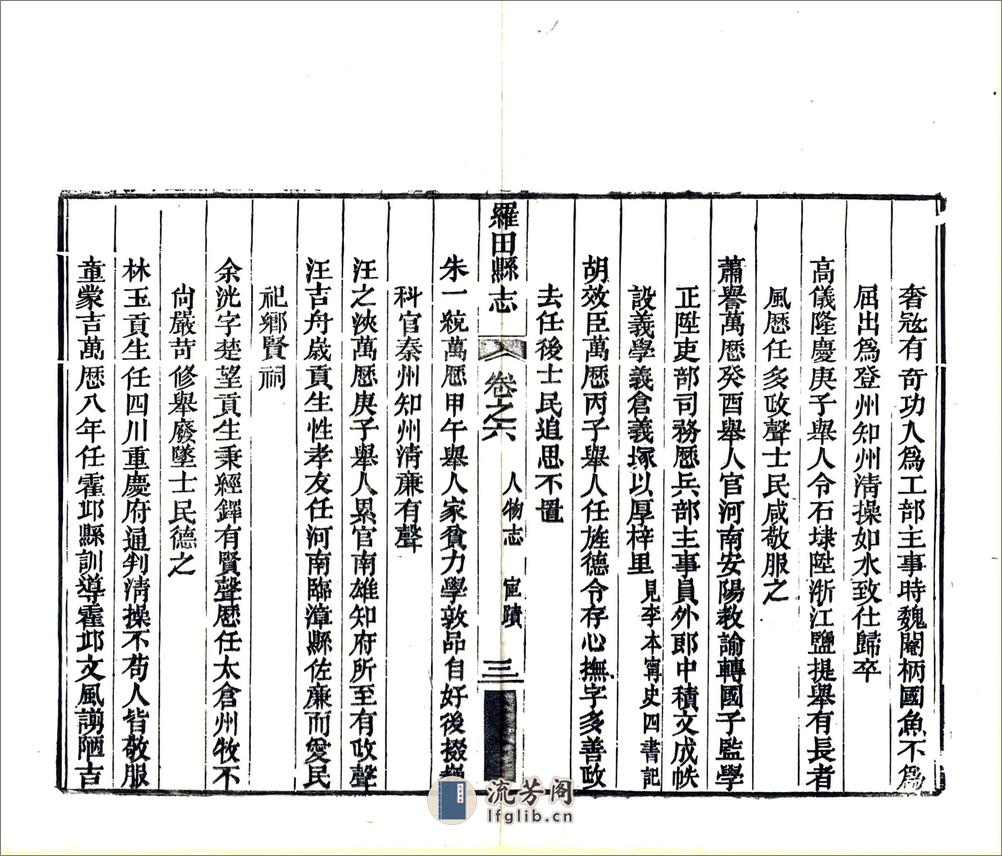 奢寇有奇功入爲工部主事時魏閹柄國魚不爲
屈出爲登州知州清操如水致仕歸卒
高儀隆慶庚子舉人令石埭陞浙江鹽提舉有長者
風歷任多政聲士民咸敬服之
蕭譽萬歷癸酉舉人官河南安陽教諭轉國子監學
正陞吏部司務歷兵部主事員外郎中積文成帙
設義學義倉義塚以厚梓里見李本寧史四書記
胡效臣萬歷丙子舉人任旌德令存心撫字多善政
去任後士民追思不置
羅田縣志 卷之六 人物志 宦蹟 三
朱一統萬歷甲午舉人家貧力學敦品自好後掇
科官秦州知州清廉有聲
汪之浹萬歷庚子舉人累官南雄知府所至有政聲
汪吉舟歲貢生性孝友任河南臨漳縣佐廉而愛民
祀鄉賢祠
余洸字楚望貢生秉經鐸有賢聲歷任太倉州牧不
尙嚴苛修舉廢墜士民德之
林玉貢生任四川重慶府通判清操不苟人皆敬服
童蒙吉萬歷八年任霍邱縣訓導霍邱文風謭陋吉
流芳阁
lfglib.cn